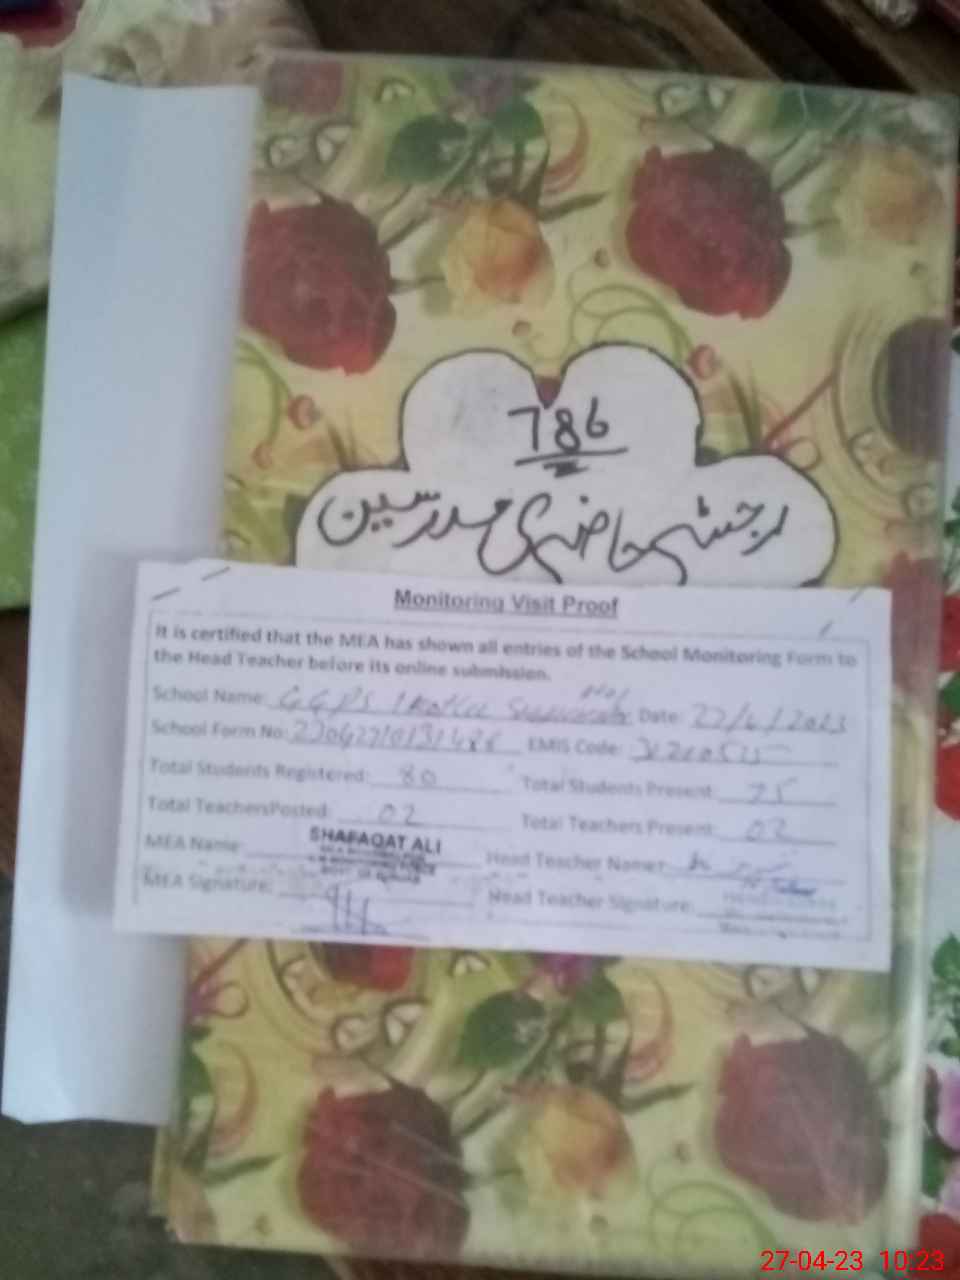 786
رجسٹر حاضری مدرسین
Monitoring Visit Proof
It is certified that the MEA has shown all entries of the School Monitoring Form to
the Head Teacher before its online submission.
School Name: GGPS Date: 27/4/2023
School Form No: EMIS Code:
Total Students Registered: 80 Total Students Present: 75
Total TeachersPosted: 02 Total Teachers Present: 02
MEA Name: SHAFAQAT ALI Head Teacher Name:
MEA Signature: Head Teacher Signature:
27-04-23 10:23